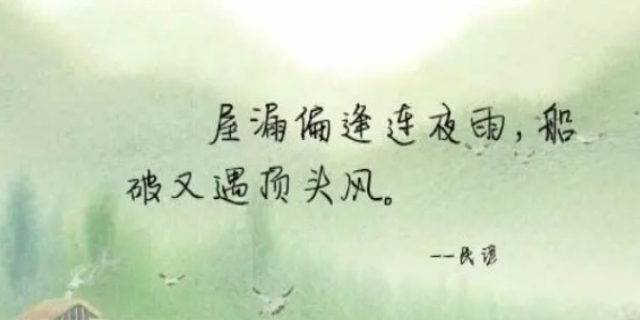 屋漏偏逢连夜雨,船
破又遇顶头风。
--民谚